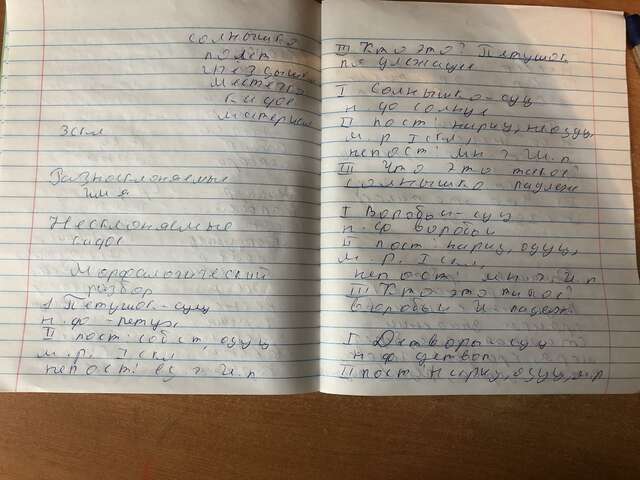 солнышко
полёт
гнездышко
местечко
видео
материал
3 скл
Разносклоняемые
имя
Несклоняемые
видео
Морфологический
разбор
1 Петушок - сущ
н. ф - петух
II пост: собст, одуш
м. р. I скл
непост: ед. ч. И. п
III Кто это? Петушок
подлежащее
I Солнышко - сущ
н. ф солнце
II пост: нариц, неодуш
м. р I скл,
непост: мн. ч. И. п
III Что это такое?
солнышко
I Воробьи - сущ
н. ф воробей
II пост: нариц, одуш,
м. р. I скл,
непост: мн. ч И. п
III Кто это такое?
воробьи
I Детвора - сущ
н. ф детвор
II пост нариц, одуш, м. р